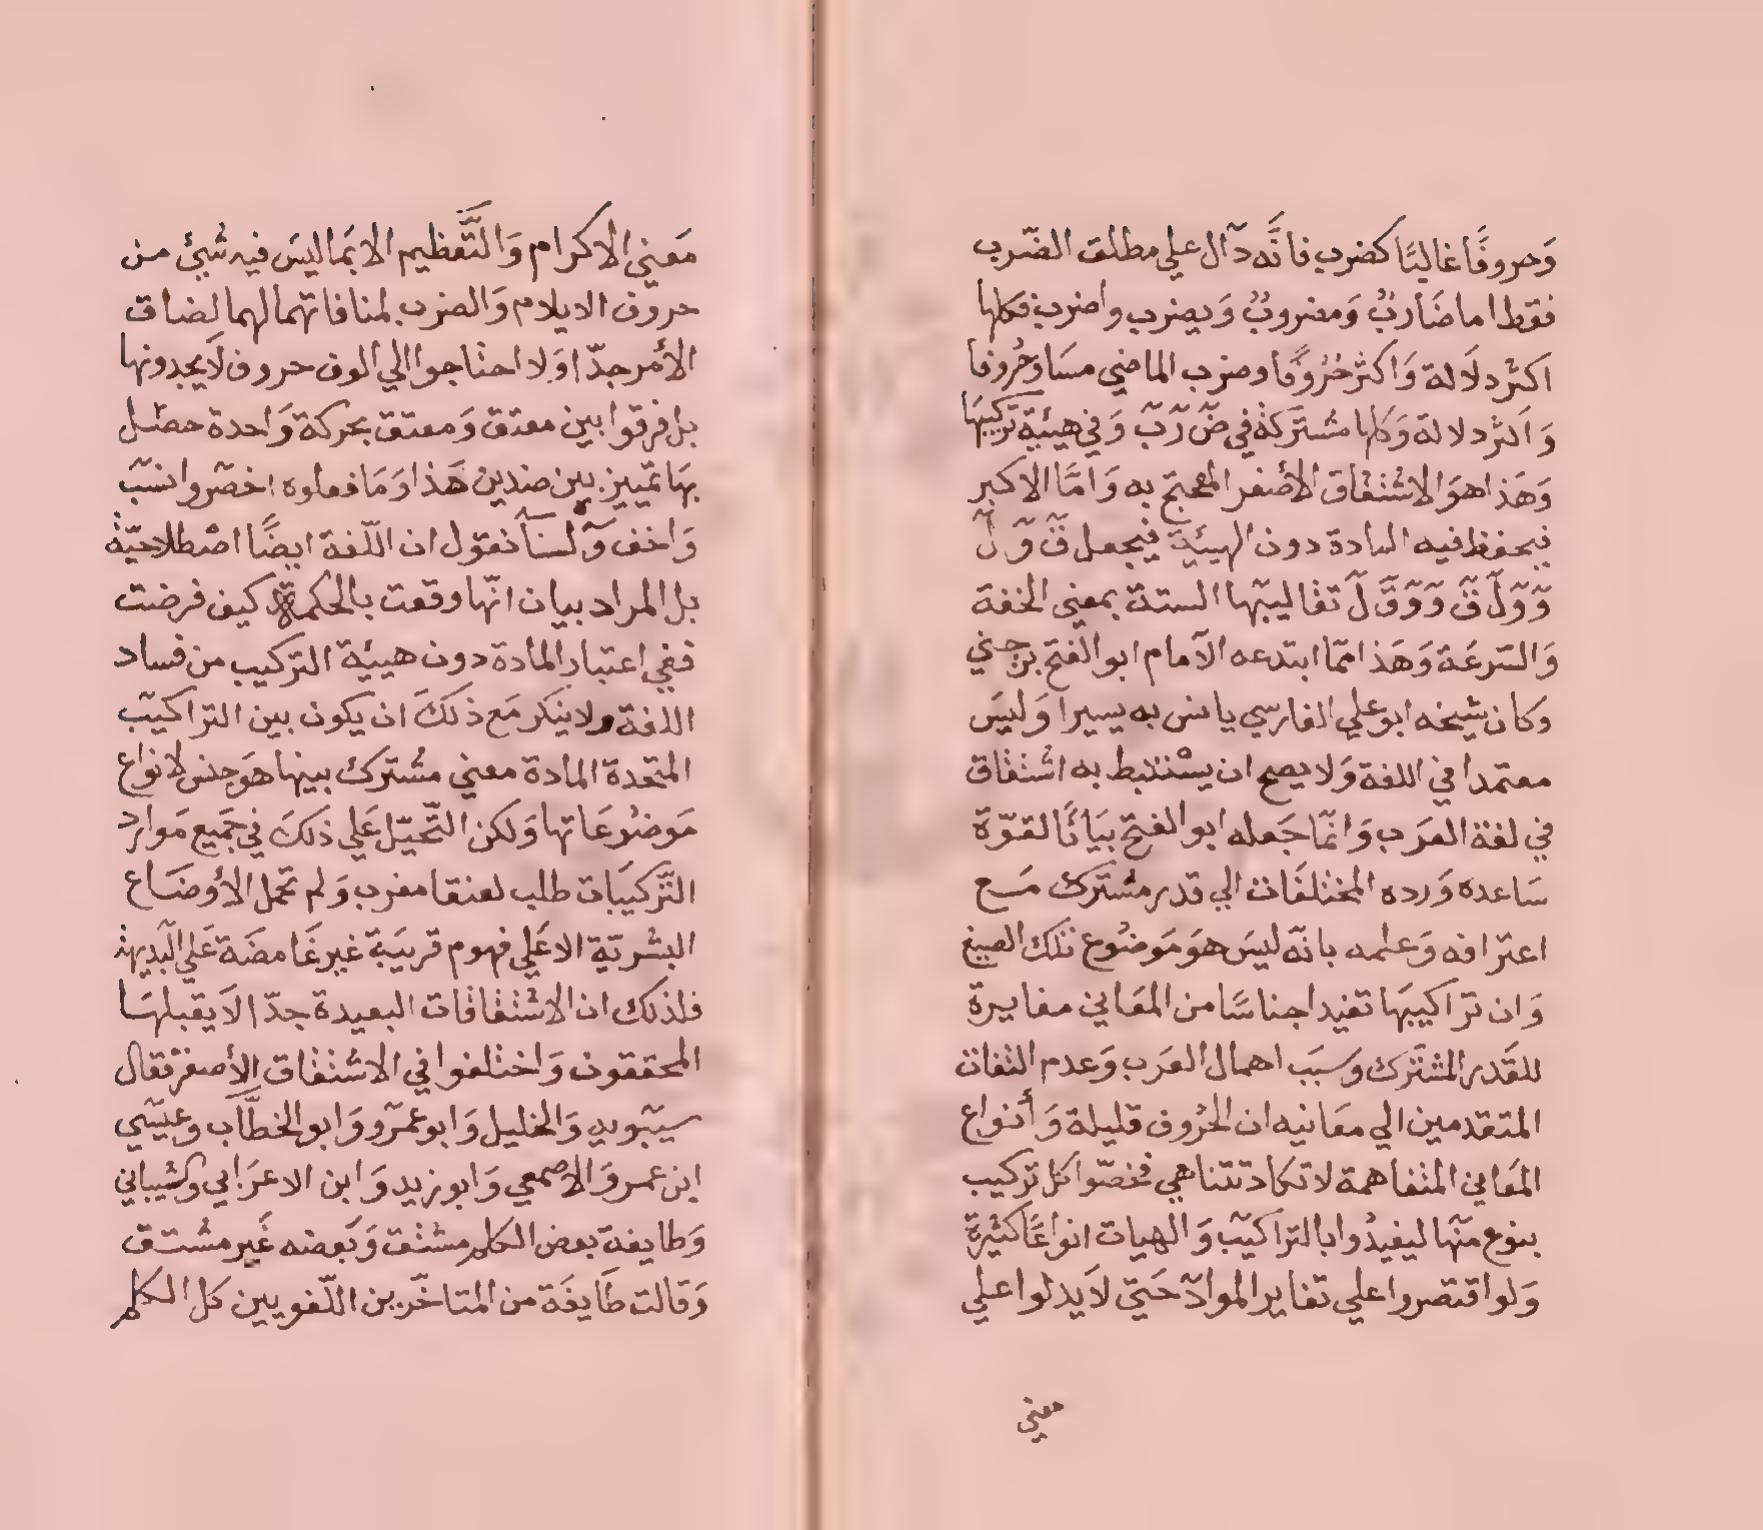 وَحروفًا غالبًا كضرب فانَّه دآل علي مطلق الضّرب
فقط اما ضَاربٌ وَمضروبٌ وَيضرب واضرب فكلها
اكثر دلَالة وَاكثر حُرُوفًا وضرب الماضي مسَاو حُروفا
وَاكثر دلالة وَكلها مشتَركة في ضّ رّ بّ وَفي هيئية تركيبهَا
وَهَذا هوَ الاشتقاق الأصغر المحتج به وَامَّا الاكبر
فيحفظ فيه المادة دون الهيئية فيجعل قّ وّ لّ
وّ وّ لّ قّ وَ وّ قّ لّ تقاليبّها الستة بمعني الخفة
وَالسّرعَة وَهَذا ممّا ابتدعه الآمام ابو الفتح بن جني
وكان شيخه ابو علي الفارسي يانس به يسيرا وَليسَ
معتمدا في اللغة وَلا يصح ان يسْتنبط به اشتقاق
في لغة العرَب وَانمّا جَعله ابو الفتح بيَانًا لقوّة
سَاعده وَرده المختلفَات الي قدر مشترك مَع
اعترافه وَعلمه بانّه ليسَ هوَ مَوضوع تلك الصيغ
وَان تراكيبهَا تفيد اجناسًا من المعَاني مغايرة
للقَدر المشترَك وَسبَب اهمال العرَب وَعدم التفات
المتقدمين الي معَانيه ان الحرُوف قليلة وَأنواع
المعَاني المتفاهمة لا تكاد تتناهي فخصّوا كل تركيب
بنوع منّها ليفيدُوا بالتراكيّب وَالهيات انواعًا كثيرة
وَلو اقتصروا علي تغاير الموادّ حَتيّ لَا يدلوا علي
معني
مَعني الاكرام وَالتَّعظيم الا بمَا ليسَ فيه شئ من
حروف الايلام وَالضرب لمنافاتهما لهما لضاق
الأمر جدّا وَلا احتاجوا الي الوف حروف لَا يجدونها
بل فرقوا بين معتق وَمعتق بحركة وَاحدة حصَل
بهَا تمّييز بين ضدين هَذا وَمَا فعلوه اخصّر وانسّب
وَاخف وّلسنا نقول ان اللّغة ايضًا اصْطلاحيّة
بل المراد بيان انّها وقعت بالحكمة كيف فرضت
ففي اعتبار المادة دون هيئية التركيب من فساد
اللغة ولا ينكر مَع ذلكَ ان يكون بين التراكيّب
المتحدة المادة معني مشترك بينها هَو جنس لانواع
مَوضوعَاتها وَلكن التّحيّل عَلي ذلكَ في جَميع مَوارد
التّركيبَات طلب لعنقا مغرب وَلم تحمل الأوضَاع
البشرَية الا عَلي فهوم قريبَة غير غَامضَة عَلي البَديهة
فلذلك ان الاشتقاقات البعيدة جدّا لَا يقبلهَا
المحققون وَاختلفوا في الاشتقاق الأصغر فقال
سيّبويه وَالخليل وَابو عمرّو وَابو الخطّاب وعيسّي
ابن عمر وَالاصمعي وَابو زيد وَابن الاعرَابي وَشيباني
وَطايفة بعض الكلم مشتق وَبَعضه غَير مشتق
وَقالت طَايفَة من المتاخّرين اللّغويين كل الكلم